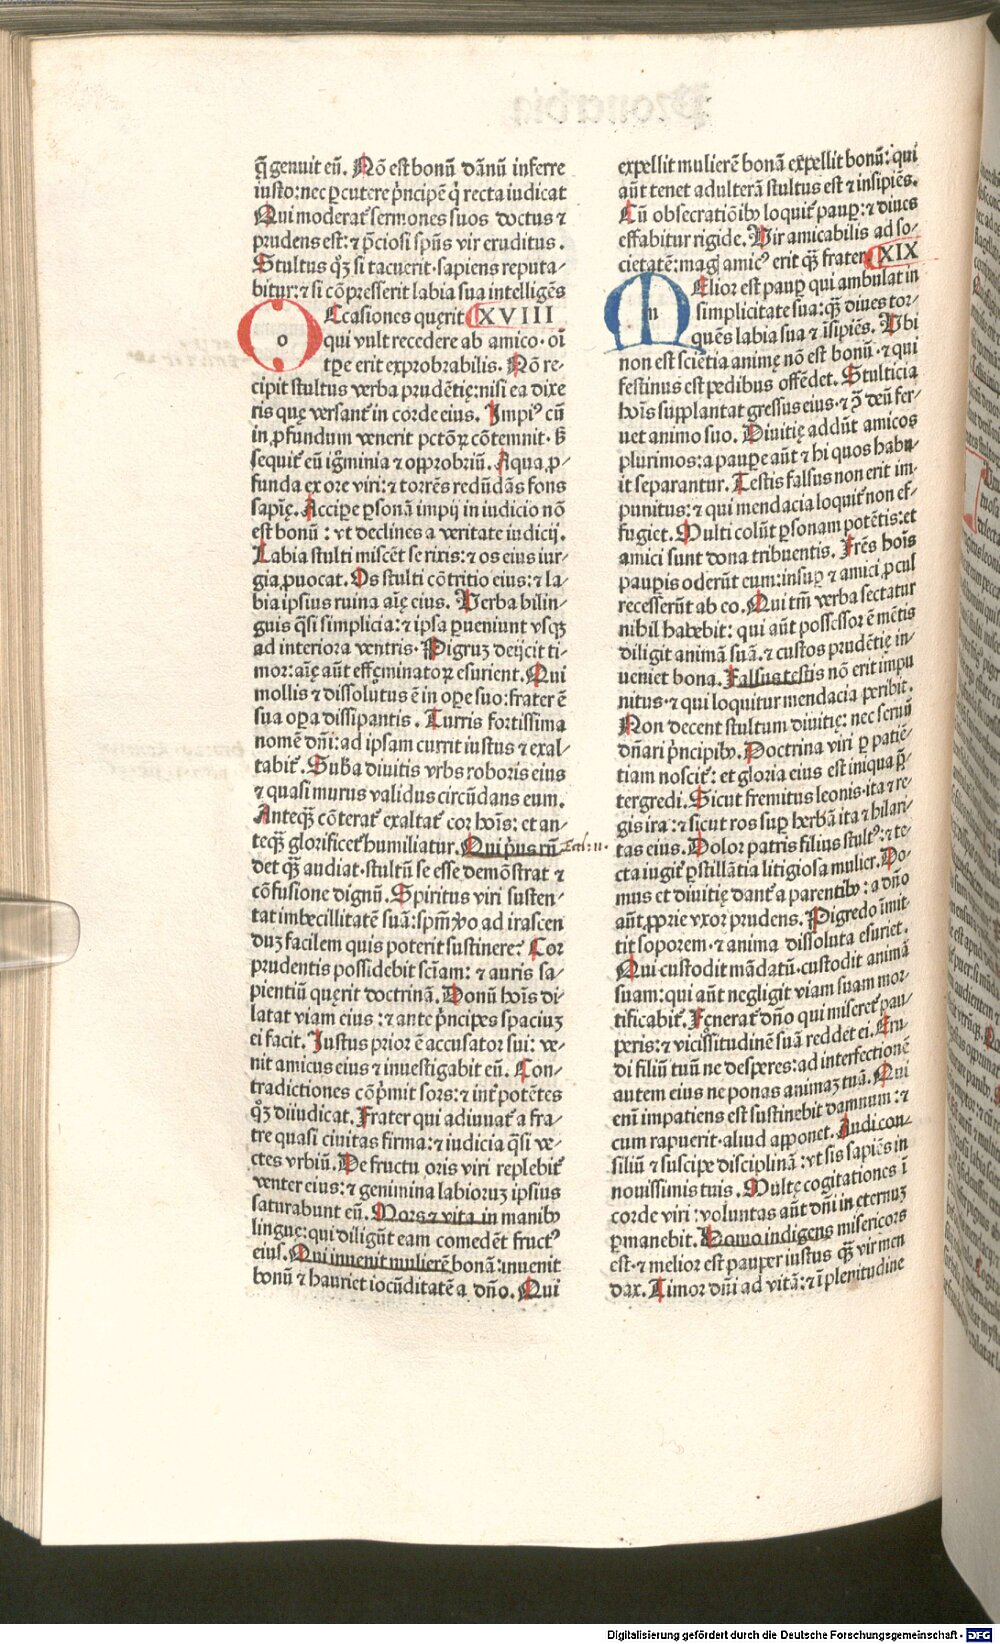 q̃ genuit eũ. Nõ est bonũ dãnũ inferre
iusto: nec ꝑcutere prĩcipẽ q̇ recta iudicat
Qui moderat̃ sermones suos doctus ⁊
prudens est: ⁊ p̃ciosi spũs vir eruditus.
Stultus qȝ si tacuerit sapiens reputa⸗
bitur: ⁊ si cõpresserit labia sua intelligẽs
OCcasiones quęrit XVIII
o
qui vult recedere ab amico. oĩ
tꝑe erit exprobrabilis. Nõ re⸗
cipit stultus verba prudẽtię: nisi ea dixe
ris quę versant̃ in corde eius. Impiꝰ cũ
in ꝓfundum venerit pctõꝝ cõtemnit. sȝ
sequit̃ eũ igñminia ⁊ opprobriũ. Aqua ꝓ⸗
funda ex ore viri: ⁊ torrẽs redũdãs fons
sapĩę. Accipe ꝑsonã impij in iudicio nõ
est bonũ: vt declines a veritate iudicij.
Labia stulti miscẽt se rixis: ⁊ os eius iur⸗
gia ꝓuocat. Os stulti cõtritio eius: ⁊ la⸗
bia ipsius ruina aĩę eius. Verba bilin⸗
guis q̃si simplicia: ⁊ ipsa ꝑueniunt vsqȝ
ad interiora ventris. Pigruȝ deijcit ti⸗
mor: aĩę aũt effęminatoꝝ esurient. Qui
mollis ⁊ dissolutus ẽ in oꝑe suo: frater ẽ
sua oꝑa dissipantis. Turris fortissima
nomẽ dñi: ad ipsam currit iustus ⁊ exal⸗
tabit̃. Suba diuitis vrbs roboris eius
⁊ quasi murus validus circũdans eum.
Anteq̃ȝ cõterat̃ exaltat̃ cor hoĩs: et an⸗
teq̃ȝ glorificet̃ humiliatur. Qui prĩus rñ
Eccl. 11.
det q̃ȝ audiat. stultũ se esse demõstrat ⁊
cõfusione dignũ. Spiritus viri susten⸗
tat imbecillitatẽ suã: spm̃ ꝟo ad irascen
duȝ facilem quis poterit sustinere? Cor
prudentis possidebit sciãm: ⁊ auris sa⸗
pientiũ quęrit doctrinã. Donũ hoĩs di⸗
latat viam eius: ⁊ ante prĩcipes spaciuȝ
ei facit. Justus prior ẽ accusator sui: ve⸗
nit amicus eius ⁊ inuestigabit eũ. Con⸗
tradictiones cõprĩmit sors: ⁊ int̃ potẽtes
qȝ diiudicat. Frater qui adiuuat̃ a fra⸗
tre quasi ciuitas firma: ⁊ iudicia q̃si ve⸗
ctes vrbiũ. De fructu oris viri replebit̃
venter eius: ⁊ genimina labioruȝ ipsius
saturabunt eũ. Mors ⁊ vita in manibꝰ
linguę: qui diligũt eam comedẽt fructꝰ
eius. Qui inuenit mulierẽ bonã: inuenit
bonũ ⁊ hauriet iocũditatẽ a dño. Qui
expellit mulierẽ bonã expellit bonũ: qui
aũt tenet adulterã stultus est ⁊ insipiẽs.
Cũ obsecratiõibꝰ loquit̃ pauꝑ: ⁊ diues
effabitur rigide. Vir amicabilis ad so⸗
cietatẽ: mag̃ amicꝰ erit q̃ȝ frater. XIX
MElior est pauꝑ qui ambulat in
m
simplicitate sua: q̃ȝ diues tor⸗
quẽs labia sua ⁊ ĩsipiẽs. Vbi
non est scĩetia animę nõ est bonũ. ⁊ qui
festinus est pedibus offẽdet. Stulticia
hoĩs supplantat gressus eius. ⁊ ꝯ̃ deũ fer⸗
uet animo suo. Diuitię addũt amicos
plurimos: a pauꝑe aũt ⁊ hi quos habu⸗
it separantur. Testis falsus non erit im⸗
punitus: ⁊ qui mendacia loquit̃ non ef⸗
fugiet. Multi colũt ꝑsonam potẽtis: et
amici sunt dona tribuentis. Frẽs hoĩs
pauꝑis oderũt eum: insuꝑ ⁊ amici ꝓcul
recesserũt ab eo. Qui tm̃ verba sectatur
nihil habebit: qui aũt possessor ẽ mẽtis
diligit animã suã. ⁊ custos prudẽtię in⸗
ueniet bona. Falsus testis nõ erit impu
nitus. ⁊ qui loquitur mendacia peribit.
Non decent stultum diuitię: nec seruũ
dñari prĩcipibꝰ. Doctrina viri ꝑ patiẽ⸗
tiam noscit̃: et gloria eius est iniqua p̃⸗
tergredi. Sicut fremitus leonis. ita ⁊ re⸗
gis ira: ⁊ sicut ros suꝑ herbã ita ⁊ hilari⸗
tas eius. Dolor patris filius stultꝰ: ⁊ te⸗
cta iugit̃ ꝑstillãtia litigiosa mulier. Do⸗
mus et diuitię dant̃ a parentibꝰ: a dño
aũt ꝓprie vxor prudens. Pigredo ĩmit⸗
tit soporem. ⁊ anima dissoluta esuriet.
Qui custodit mãdatũ. custodit animã
suam: qui aũt negligit viam suam mor⸗
tificabit̃. Fenerat̃ dño qui miseret̃ pau⸗
peris: ⁊ vicissitudinẽ suã reddet ei. Eru
di filiũ tuũ ne desperes: ad interfectionẽ
autem eius ne ponas animaȝ tuã. Qui
enĩ impatiens est sustinebit damnum: ⁊
cum rapuerit. aliud apponet. Audi con⸗
siliũ ⁊ suscipe disciplinã: vt sis sapiẽs in
nouissimis tuis. Multę cogitationes ĩ
corde viri: voluntas aũt dñi in eternuȝ
ꝑmanebit. Homo indigens misericors
est. ⁊ melior est pauper iustus q̃ȝ vir men
dax. Timor dñi ad vitã: ⁊ ĩ plenitudine
Digitalisierung gefördert durch die Deutsche Forschungsgemeinschaft - DFG